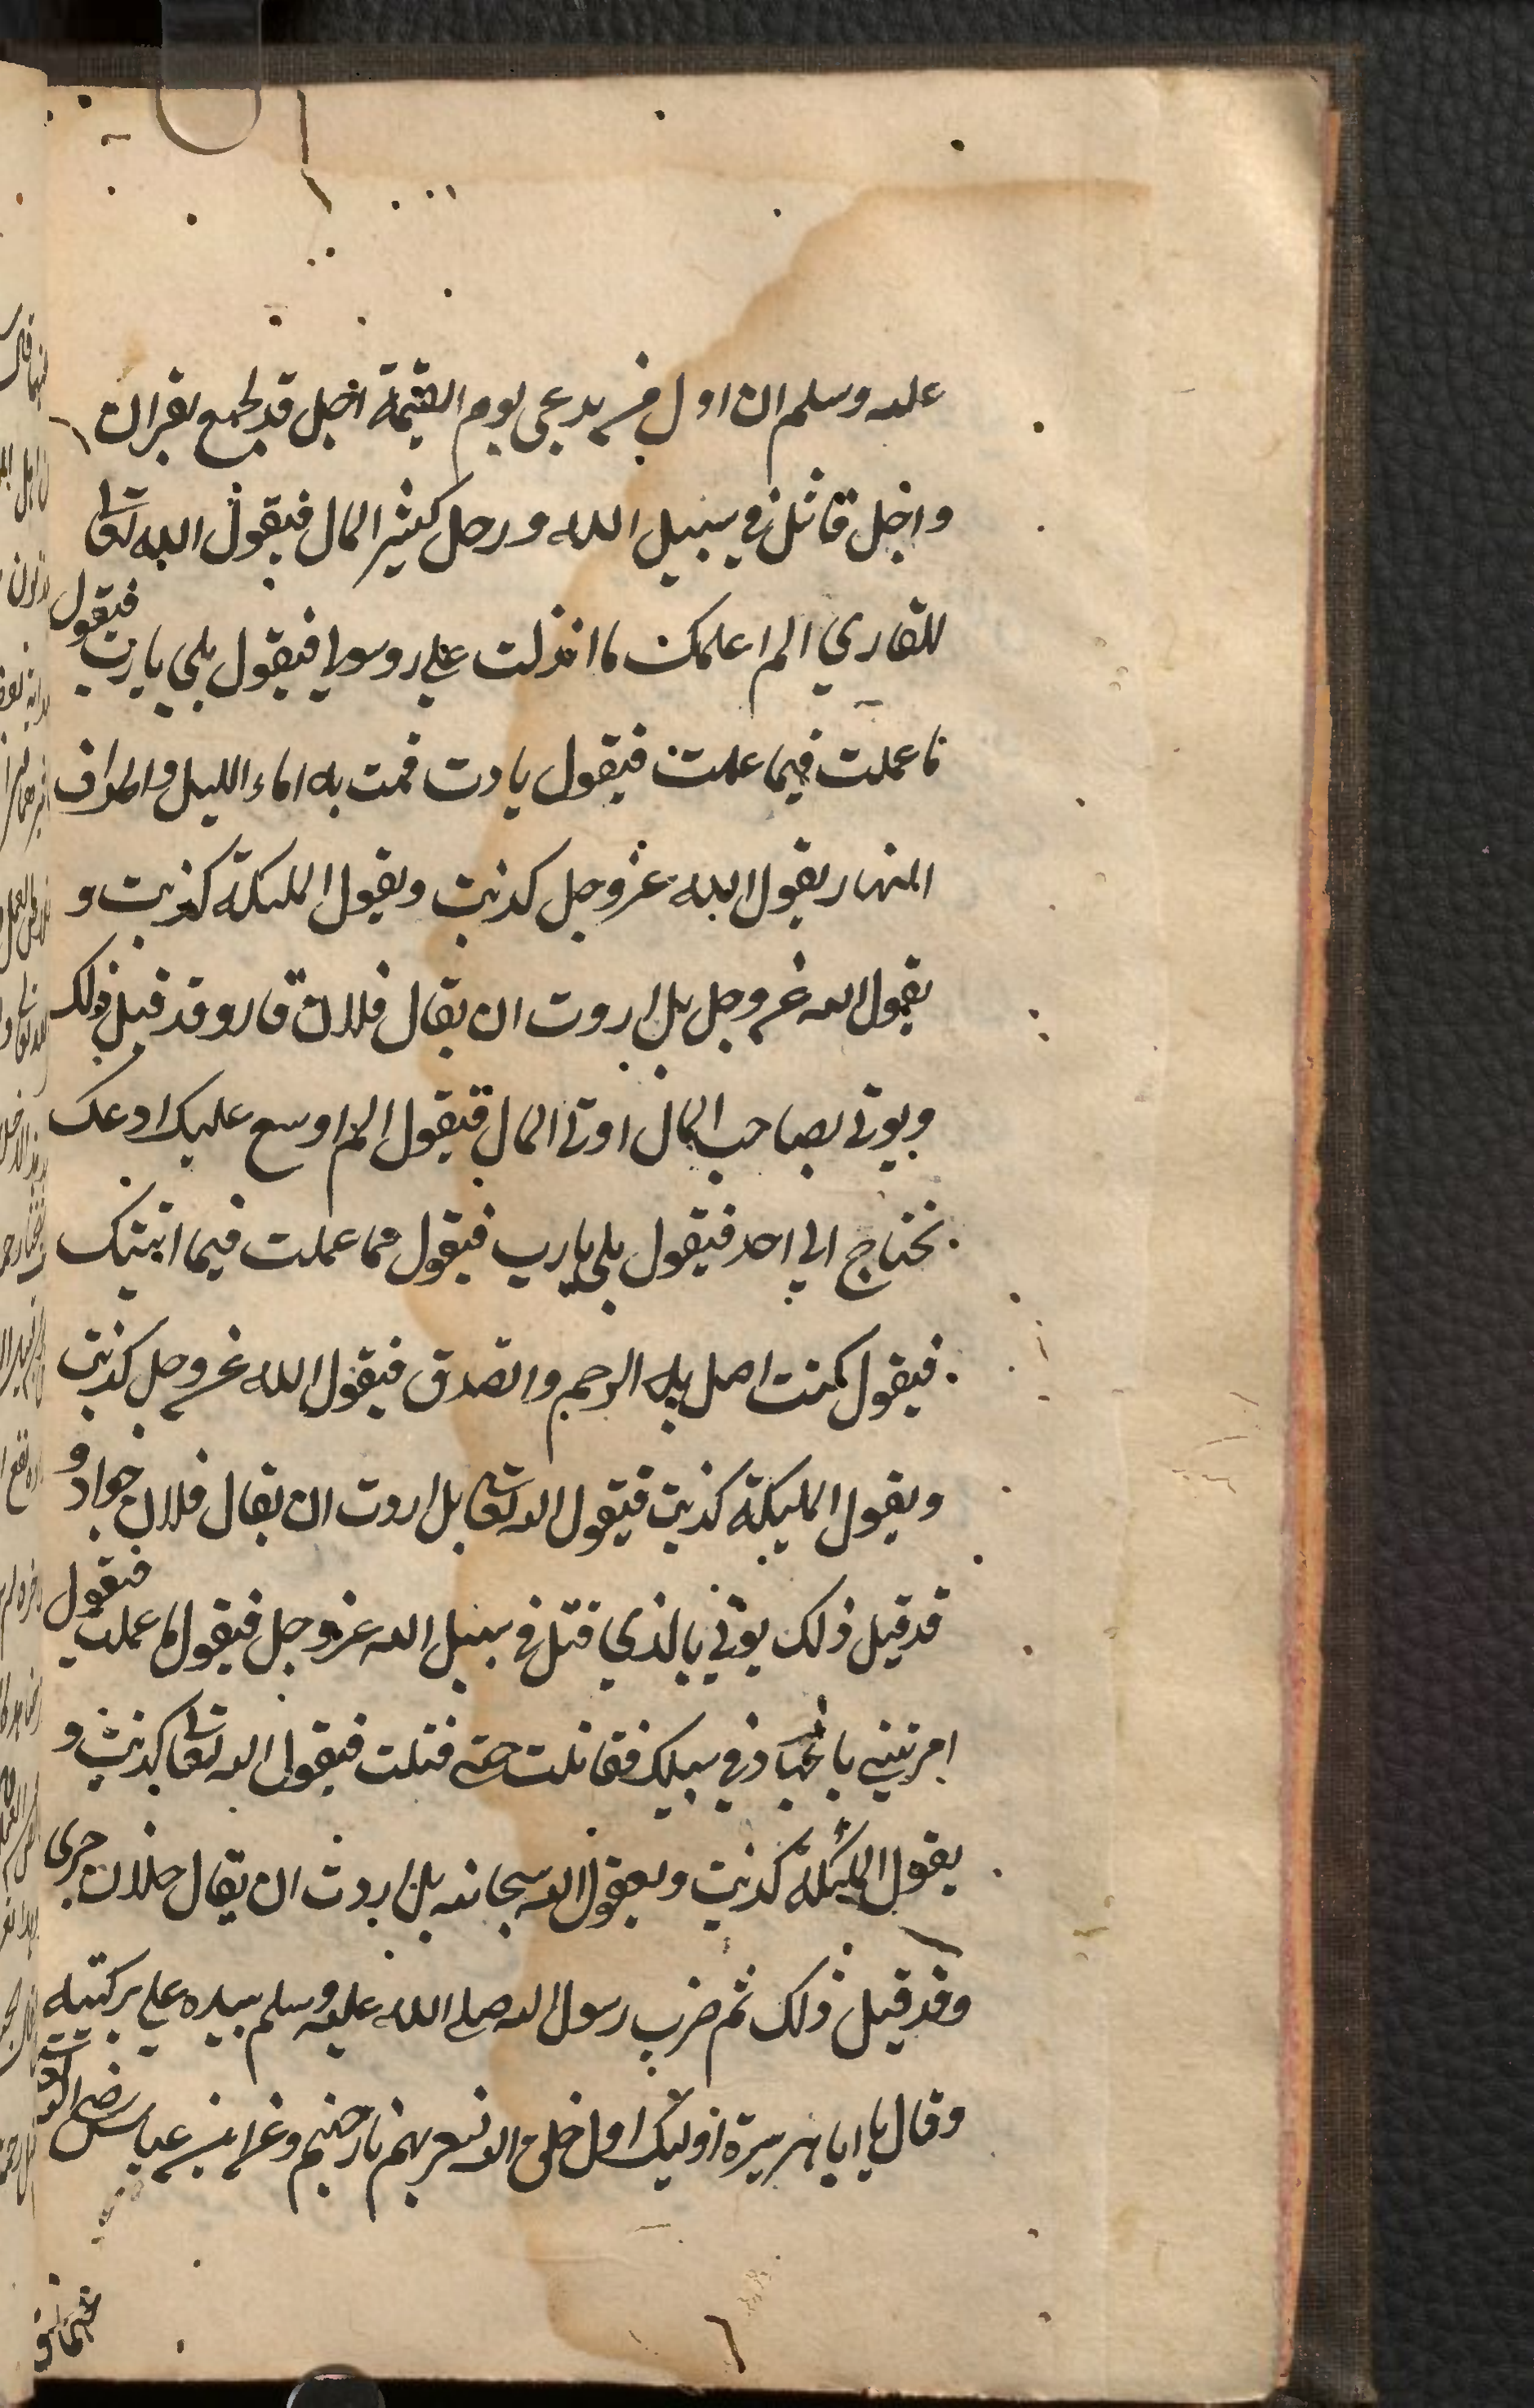 عليه وسلم ان اول من يدعى يوم القيمة اجل قد لجمع بقران
واجل قاتل في سبيل الله ورجل كثير المال فيقول الله تعالى
للقاري الم اعلمك ما انزلت علي روسولي فيقول بلي يا رب فيقول
ما عملت فيما علمت فيقول يا رب قمت به اناء الليل واطراف
النهار يقول الله عز وجل كذبت ويقول المليكة كذبت و
يقول الله عز وجل بل اردت ان يقال فلان قار وقد قيل ذلك
ويوتى بصاحب المال اوتى المال فيقول الم اوسع عليك ادعك
نختاج الي احد فيقول بلي يا رب فيقول فما عملت فيما اتيتك
فيقول كنت اصل به الرحم واتصدق فيقول الله عز وجل كذبت
ويقول المليكة كذبت فيقول الله تعالى بل اردت ان يقال فلان جواد و
قد قيل ذلك يوتي بالذي قتل في سبيل الله عز وجل فيقول ما عملت فيقول
امرتني بالجهاد في سبيلك فقاتلت حتى قتلت فيقول الله تعالى كذبت و
يقول المليكة كذبت ويقول الله سبحانه بل اردت ان يقال فلان جرى
وقد قيل ذلك ثم ضرب رسول الله صلى الله عليه وسلم بيده على ركبتيه
وقال يا ابا هريرة اوليك اول خلق الله تسعر بهم نار جهنم وعن ابن عباس رضي الله